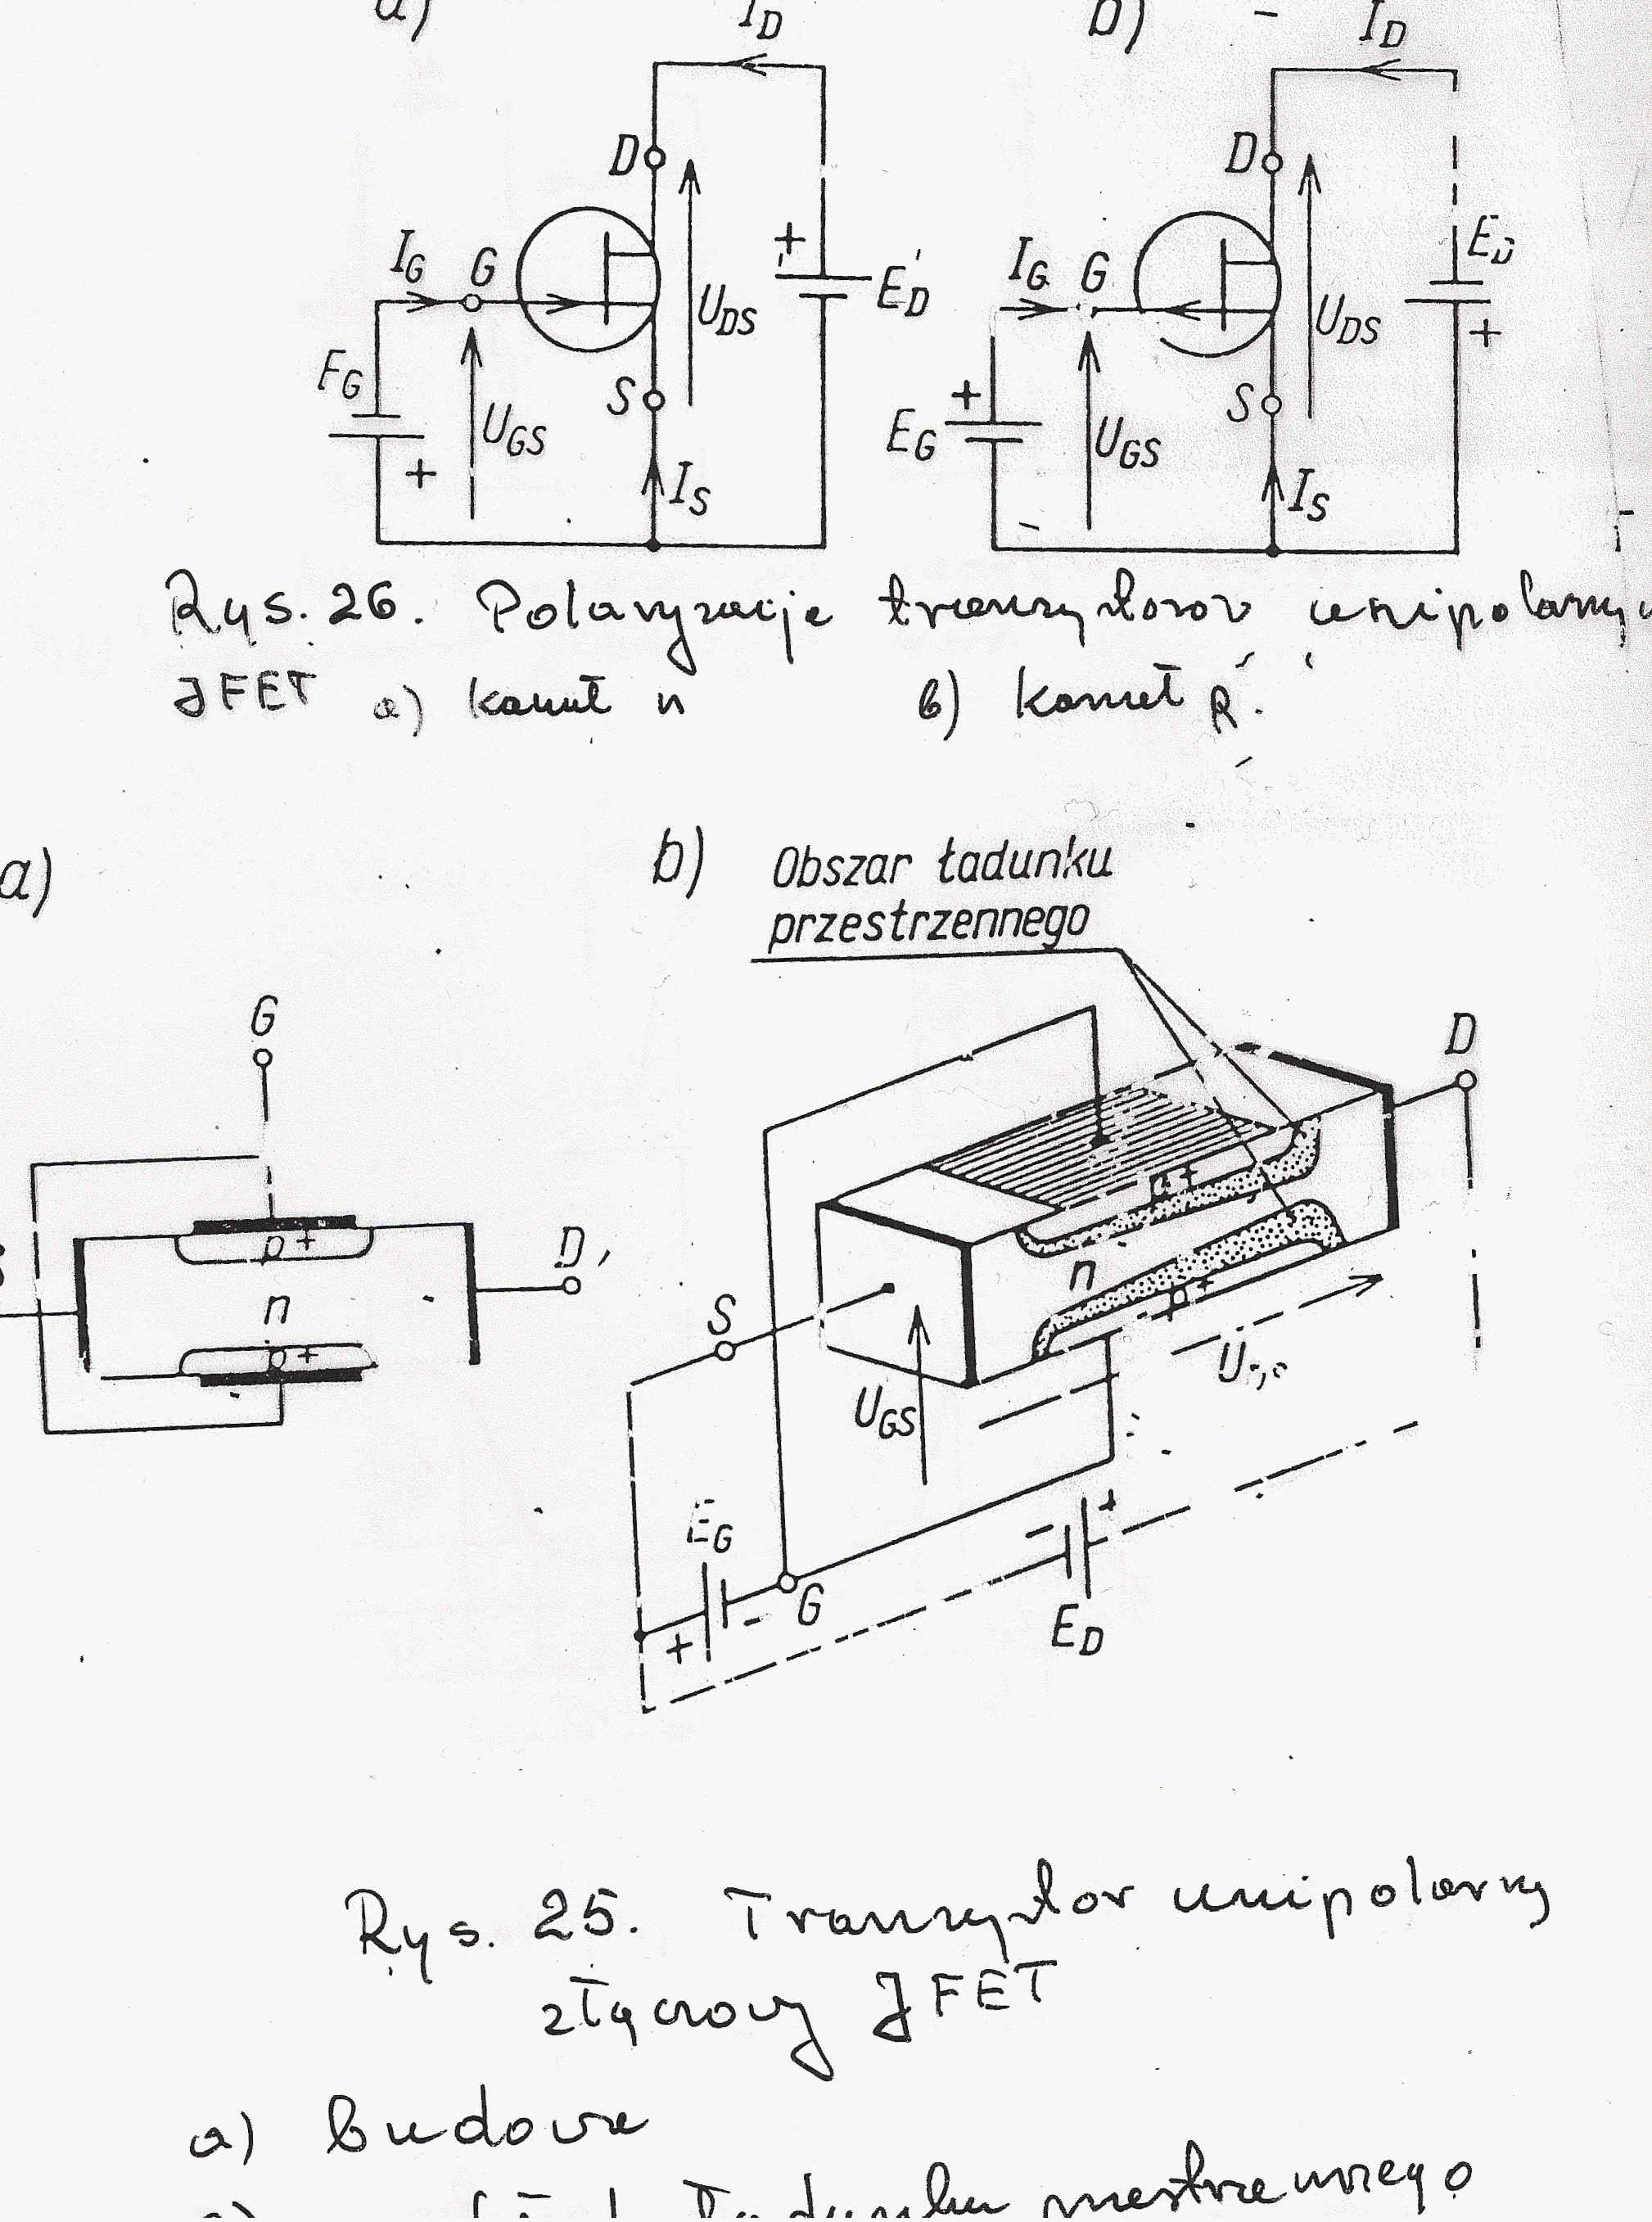 a) I_D b) I_D
D D
I_G G + E_D I_G G E_D
U_DS U_DS +
E_G S + S
U_GS E_G U_GS
+ I_S I_S
Rys. 26. Polaryzacje tranzystorów unipolarny
JFET a) kanał n b) kanał p.
a) b) Obszar ładunku
przestrzennego
G D
p+ p+
D n
n S p+
p+ U_GS
E_G - +
+ - G E_D
Rys. 25. Tranzystor unipolarny
złączowy JFET
a) budowa
ładunku przestrzennego